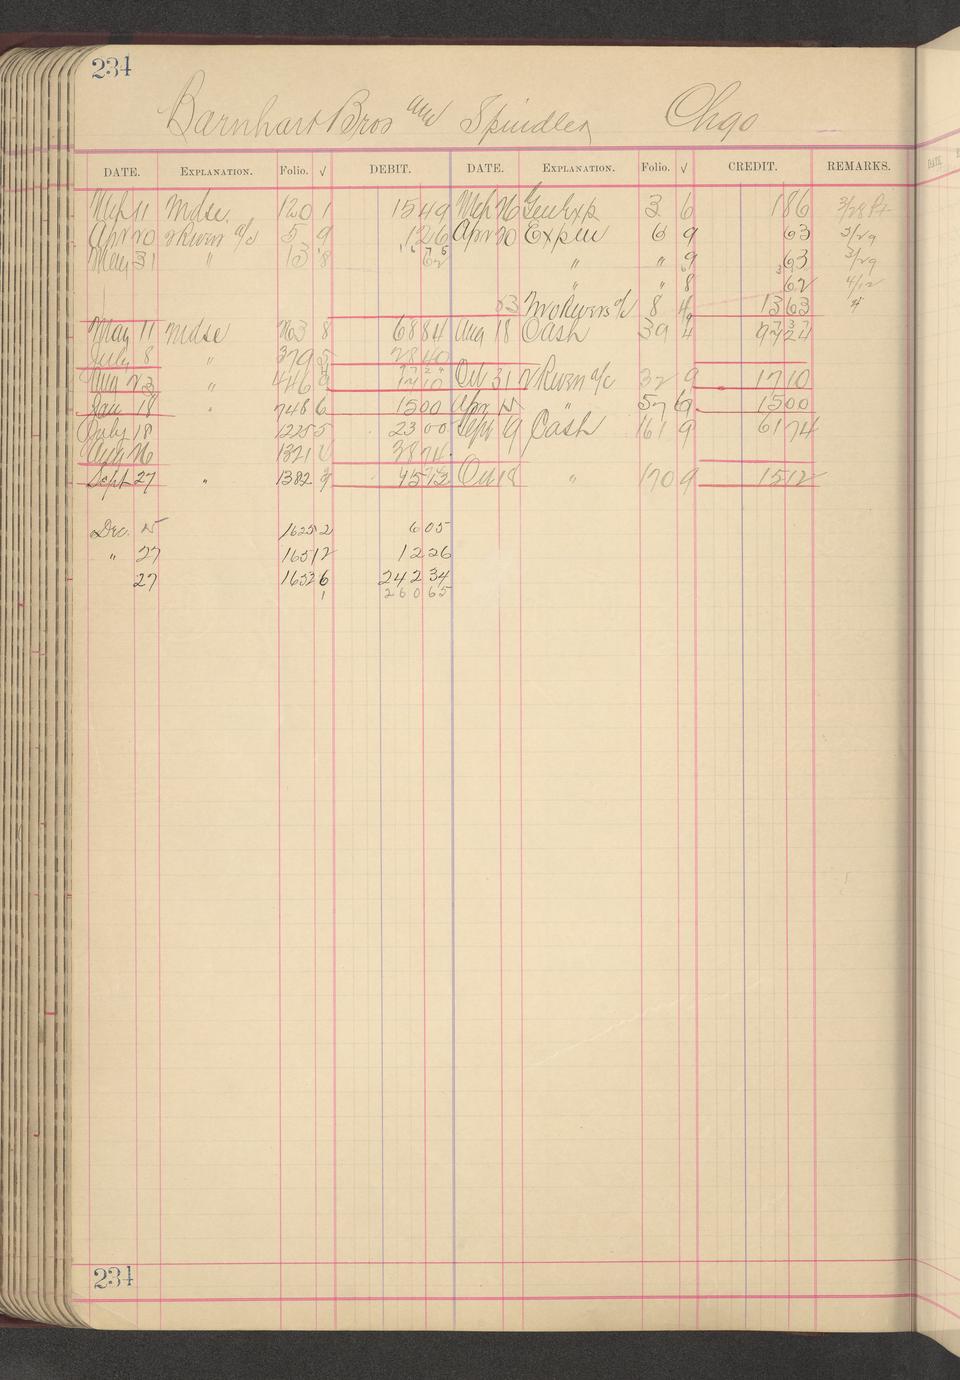 234
Barnhart Bros and Spindler Chgo
DATE. EXPLANATION. Folio. √ DEBIT. DATE. EXPLANATION. Folio. √ CREDIT. REMARKS.
Mch 11 Mdse. 120 1 15 49 Mch 26 Gen Exp 3 6 1 86 3/28
Apr 20 a/c 5 9 1 26 Apr 30 Expen 6 9 63 3/29
May 31 " 13 8 62 " " 9 63 3/29
" " 8 62 4/12
23 a/c 8 4 13 63 4
May 11 Mdse 263 8 68 84 Aug 18 Cash 39 4 97 24
July 8 " 379 5 28 40
Aug 23 " 446 9 17 10 Oct 31 a/c 32 9 17 10
Jan 18 " 748 6 15 00 Apr 15 " 57 6 15 00
July 18 1225 5 23 00 Sept 19 Cash 161 9 61 74
Aug 26 1321 4 38 74
Sept 27 " 1382 9 15 12 Oct 18 " 170 9 15 12
Dec. 15 1625 2 6 05
" 27 1651 2 12 26
27 1652 6 242 34
1 260 65
234